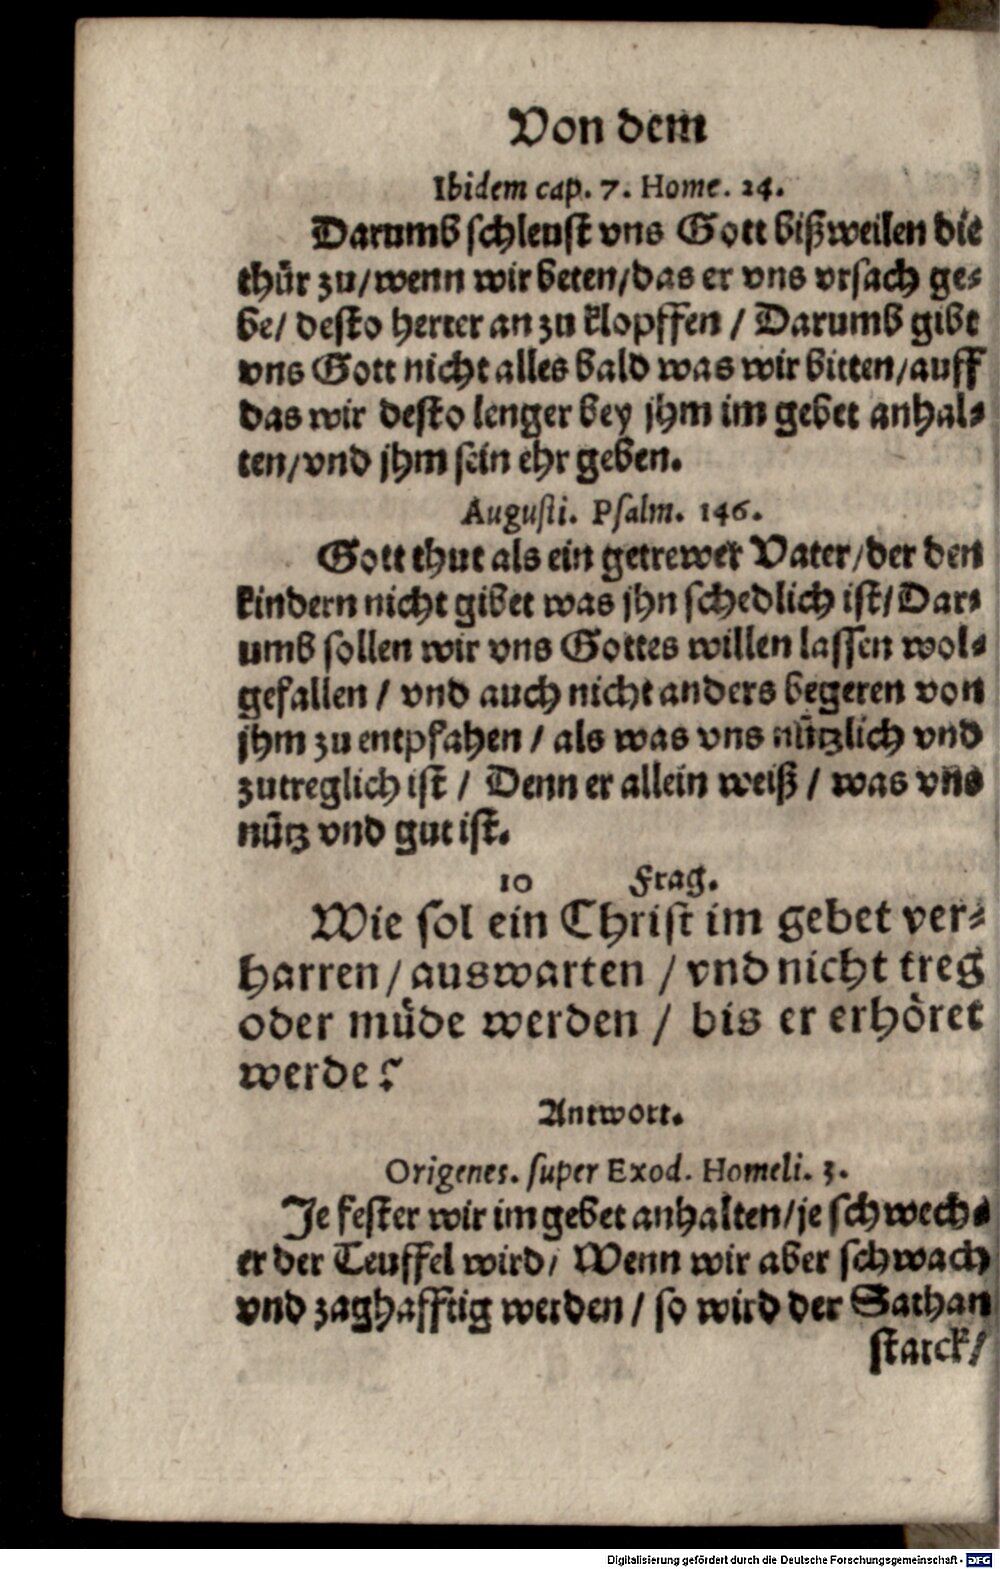 Von dem
Ibidem cap. 7. Home. 24.
Darumb schleust vns Gott bißweilen die
thür zu/wenn wir beten/das er vns vrsach ge⸗
be/ desto herter an zu klopffen / Darumb gibt
vns Gott nicht alles bald was wir bitten/auff
das wir desto lenger bey jhm im gebet anhal⸗
ten/vnd jhm sein ehr geben.
Augusti. Psalm. 146.
Gott thut als ein getrewer Vater/der den
kindern nicht gibet was jhn schedlich ist/Dar⸗
umb sollen wir vns Gottes willen lassen wol⸗
gefallen / vnd auch nicht anders begeren von
jhm zu entpfahen / als was vns nützlich vnd
zutreglich ist / Denn er allein weiß / was vns
nütz vnd gut ist.
10 Frag.
Wie sol ein Christ im gebet ver⸗
harren/auswarten / vnd nicht treg
oder müde werden / bis er erhöret
werde?
Antwort.
Origenes. super Exod. Homeli. 3.
Je fester wir im gebet anhalten/je schwech⸗
er der Teuffel wird/ Wenn wir aber schwach
vnd zaghafftig werden / so wird der Sathan
starck/
Digitalisierung gefördert durch die Deutsche Forschungsgemeinschaft - DFG